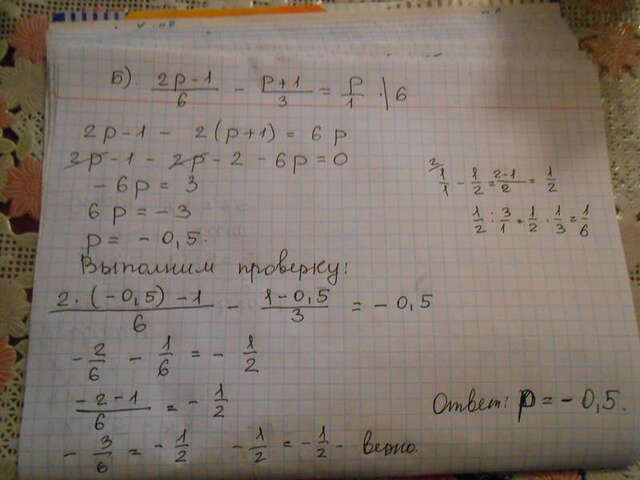 Б). (2p-1)/6 - (p+1)/3 = p/1 ·| 6
2p-1 - 2(p+1) = 6p
2p-1 - 2p-2 - 6p = 0
-6p = 3
6p = -3
p = -0,5.
Выполним проверку:
(2·(-0,5)-1)/6 - (1-0,5)/3 = -0,5
-2/6 - 1/6 = -1/2
(-2-1)/6 = -1/2
-3/6 = -1/2   -1/2 = -1/2 - верно.
2/ 1/1 - 1/2 = (2-1)/2 = 1/2
1/2 : 3/1 = 1/2 · 1/3 = 1/6
Ответ: p = -0,5.